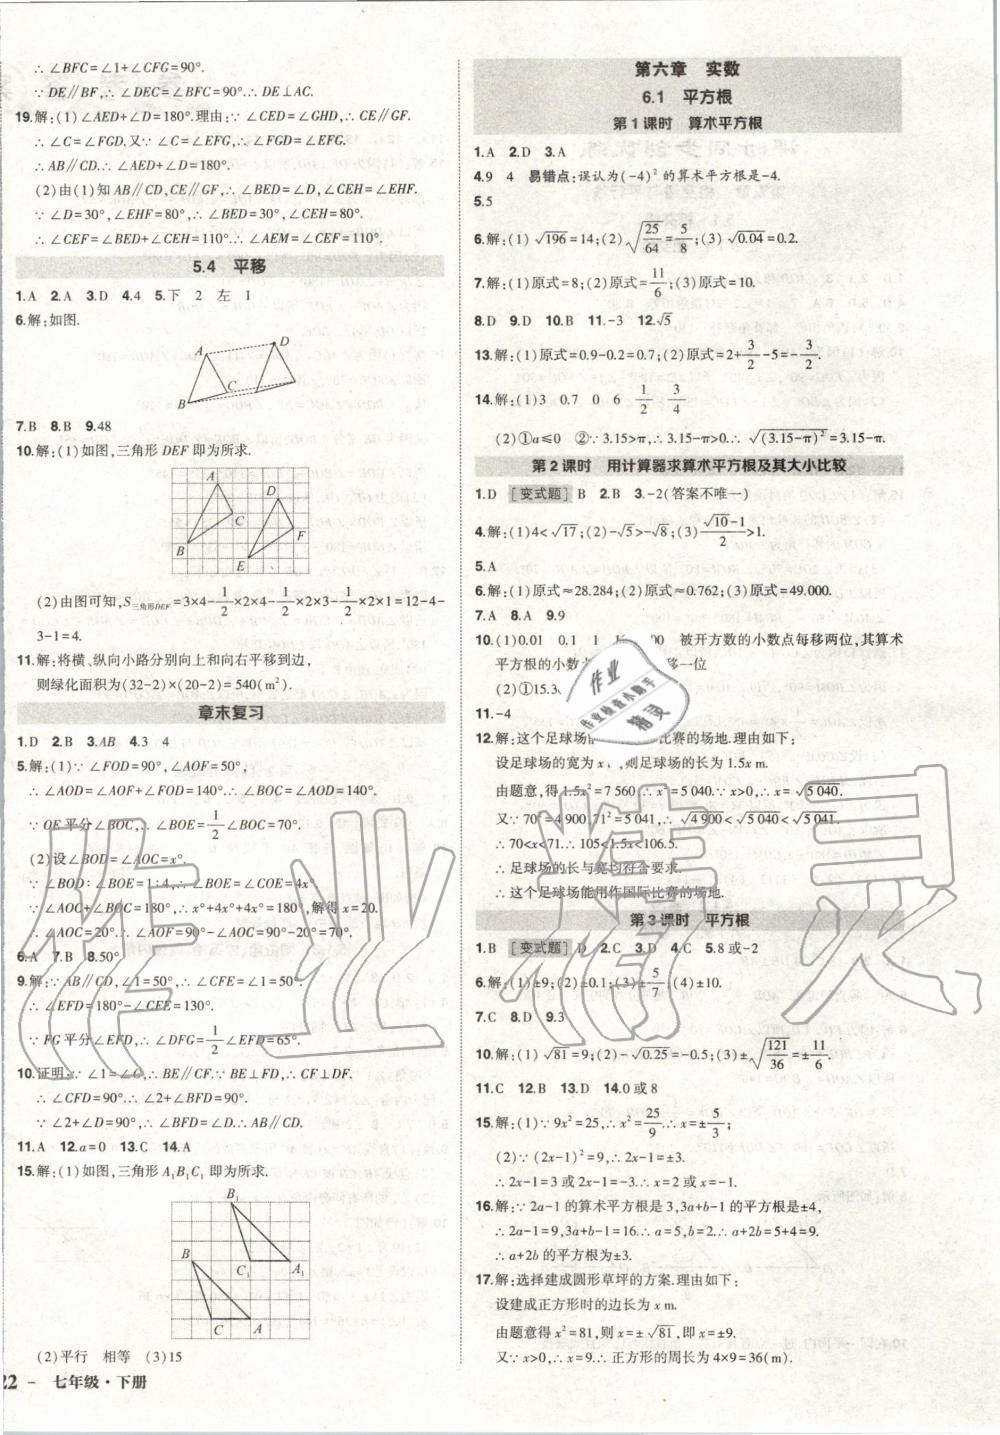 ∴ ∠BFC=∠1+∠CFG=90°.
∵ DE∥BF,∴ ∠DEC=∠BFC=90°.∴ DE⊥AC.
19.解:(1)∠AED+∠D=180°.理由:∵ ∠CED=∠GHD,∴ CE∥GF.
∴ ∠C=∠FGD.又∵ ∠C=∠EFG,∴ ∠FGD=∠EFG.
∴ AB∥CD.∴ ∠AED+∠D=180°.
(2)由(1)知AB∥CD,CE∥GF,∴ ∠BED=∠D,∠CEH=∠EHF.
∵ ∠D=30°,∠EHF=80°,∴ ∠BED=30°,∠CEH=80°.
∴ ∠CEF=∠BED+∠CEH=110°.∴ ∠AEM=∠CEF=110°.
5.4 平移
1.A 2.A 3.D 4.4 5.下 2 左 1
6.解:如图.
A
D
C
B
7.B 8.B 9.48
10.解:(1)如图,三角形DEF即为所求.
A
D
C
B
F
E
(2)由图可知,S三角形DEF=3×4-1/2×2×4-1/2×2×3-1/2×2×1=12-4-
3-1=4.
11.解:将横、纵向小路分别向上和向右平移到边,
则绿化面积为(32-2)×(20-2)=540(m²).
章末复习
1.D 2.B 3.AB 4.3 4
5.解:(1)∵ ∠FOD=90°,∠AOF=50°,
∴ ∠AOD=∠AOF+∠FOD=140°.∴ ∠BOC=∠AOD=140°.
∵ OE平分∠BOC,∴ ∠BOE=1/2∠BOC=70°.
(2)设∠BOD=∠AOC=x°.
∵ ∠BOD∶∠BOE=1∶4,∴ ∠BOE=∠COE=4x°.
∵ ∠AOC+∠BOC=180°,∴ x°+4x°+4x°=180°,解得x=20.
∴ ∠AOC=20°.∴ ∠AOF=90°-∠AOC=90°-20°=70°.
6.A 7.B 8.50°
9.解:∵ AB∥CD,∠1=50°,∴ ∠CFE=∠1=50°.
∴ ∠EFD=180°-∠CFE=130°.
∵ FG平分∠EFD,∴ ∠DFG=1/2∠EFD=65°.
10.证明:∵ ∠1=∠C,∴ BE∥CF.∵ BE⊥FD,∴ CF⊥DF.
∴ ∠CFD=90°.∴ ∠2+∠BFD=90°.
∵ ∠2+∠D=90°,∴ ∠BFD=∠D.∴ AB∥CD.
11.A 12.a=0 13.C 14.A
15.解:(1)如图,三角形A₁B₁C₁即为所求.
B₁
B
C₁
A₁
C
A
(2)平行 相等 (3)15
22 - 七年级·下册
第六章 实数
6.1 平方根
第1课时 算术平方根
1.A 2.D 3.A
4.9 4 易错点:误认为(-4)²的算术平方根是-4.
5.5
6.解:(1)√196=14;(2)√(25/64)=5/8;(3)√0.04=0.2.
7.解:(1)原式=8;(2)原式=11/6;(3)原式=10.
8.D 9.D 10.B 11.-3 12.√5
13.解:(1)原式=0.9-0.2=0.7;(2)原式=2+3/2-5=-3/2.
14.解:(1)3 0.7 0 6 1/2 3/4
(2)①a≤0 ②∵ 3.15>π,∴ 3.15-π>0.∴ √(3.15-π)²=3.15-π.
第2课时 用计算器求算术平方根及其大小比较
1.D [变式题] B 2.B 3.-2(答案不唯一)
4.解:(1)4<√17;(2)-√5>-√8;(3)(√10-1)/2>1.
5.A
6.解:(1)原式≈28.284;(2)原式≈0.762;(3)原式≈49.000.
7.A 8.A 9.9
10.(1)0.01 0.1 1 被开方数的小数点每移两位,其算术
平方根的小数 移一位
(2)①15.3
11.-4
12.解:这个足球场能 比赛的场地.理由如下:
设足球场的宽为x ,则足球场的长为1.5x m.
由题意,得1.5x²=7 560,∴ x²=5 040.∵ x>0,∴ x=√5 040.
又∵ 70²=4 900,71²=5 041,∴ √4 900<√5 040<√5 041.
∴ 70<x<71.∴ 105<1.5x<106.5.
∴ 足球场的长与宽均符合要求.
∴ 这个足球场能用作国际比赛的场地.
第3课时 平方根
1.B [变式题] D 2.C 3.D 4.C 5.8或-2
6.解:(1)±9;(2)±0.1;(3)±5/7;(4)±10.
7.C 8.D 9.3
10.解:(1)√81=9;(2)-√0.25=-0.5;(3)±√(121/36)=±11/6.
11.C 12.B 13.D 14.0或8
15.解:(1)∵ 9x²=25,∴ x²=25/9.∴ x=±5/3;
(2)∵ (2x-1)²=9,∴ 2x-1=±3.
∴ 2x-1=3或2x-1=-3.∴ x=2或x=-1.
16.解:∵ 2a-1的算术平方根是3,3a+b-1的平方根是±4,
∴ 2a-1=9,3a+b-1=16.∴ a=5,b=2.∴ a+2b=5+4=9.
∴ a+2b的平方根为±3.
17.解:选择建成圆形草坪的方案.理由如下:
设建成正方形时的边长为x m.
由题意得x²=81,则x=±√81,即x=±9.
又∵ x>0,∴ x=9.∴ 正方形的周长为4×9=36(m).
作业
作业检查小助手
精灵
作业精灵